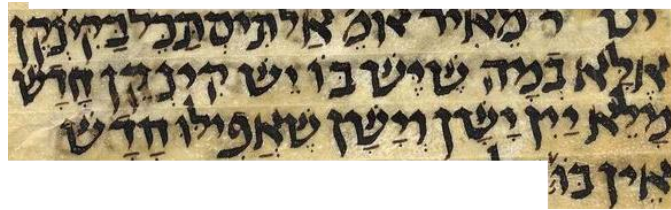 יש ר מֵאִיר אומ אַל תִּיסְתַּכַל בַּקִּינְקַן
אֶלָא בַּמֶה שֶׁיֶּשׁ בּוֹ יֵשׁ קִינְקַן חָדָשׁ
מָלֵא יַיִן יָשָׁן וְיָשָׁן שֶׁאֲפִילוּ חָדָשׁ
אֵין בּוֹ